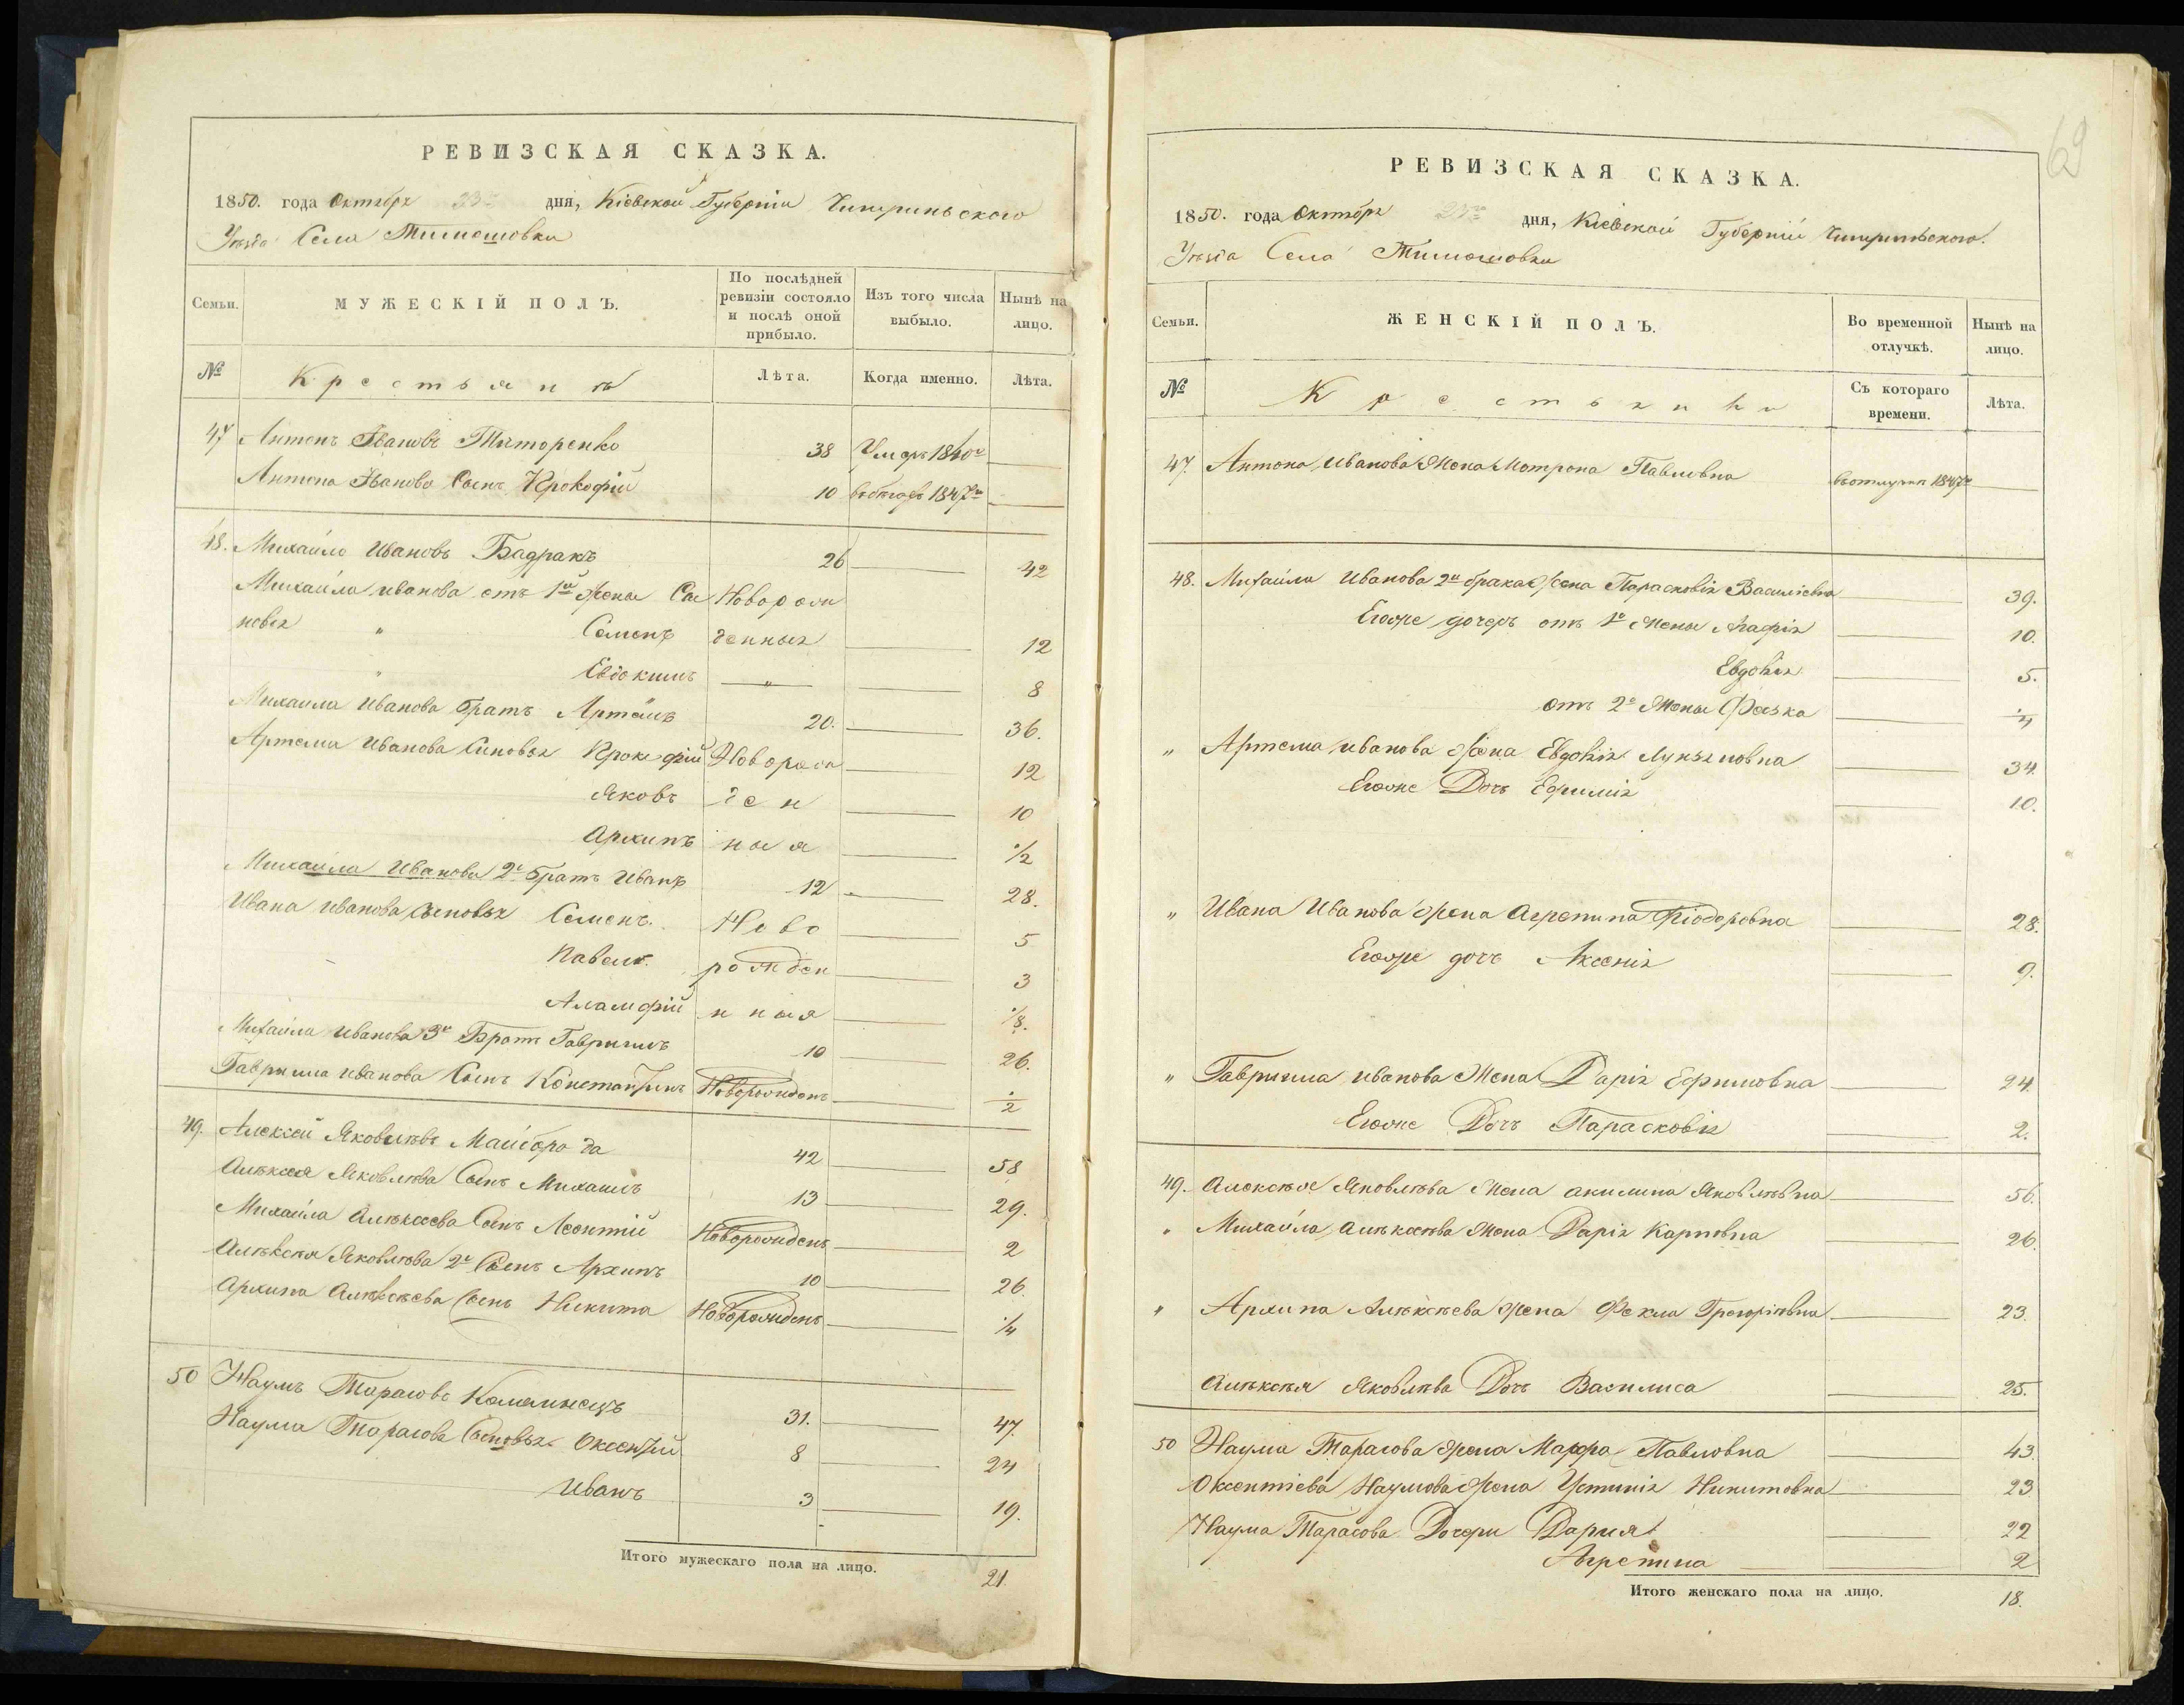 РЕВИЗСКАЯ СКАЗКА.
1850. года Октября 23го дня, Кіевской Губерніи Чигириньского
Уѣзда Села Тимошовки
Семьи. МУЖЕСКІЙ ПОЛЪ. По послѣдней ревизіи состояло и послѣ оной прибыло. Изъ того числа выбыло. Нынѣ на лицо.
№ Крестьянѣ Лѣта. Когда именно. Лѣта.
47 Антонъ Ивановъ Титоренко 38 Умеръ 1840го
Антона Иванова Сынъ Прокофій 10 въбѣгахъ 1847го
48. Михайло Ивановъ Бадракъ 26 42
Михайла иванова отъ 1ой Жены СыНоворож
новья " Семенъ денныя 12
" Евдокимъ " 8
Михаила Иванова братъ Артемъ 20. 36.
Артема Иванова Синовья Прокофій Новорож 12
Яковъ ден 10
Архипъ ныя 1/2
Михаила Иванова 2й братъ Иванъ 12 28.
Ивана Иванова Сыновья Семенъ. Ново 5
Павелъ. рожден 3
нныя 1/8.
Михайла Иванова 3й Братъ Гавриилъ 10 26.
Гавриила Иванова Сынъ Константинъ Новорожденъ 1/2
49. Алексей Яковлѣвъ Майборода 42 58
Алѣксея Яковлѣва Сынъ Михаилъ 13 29.
Михайла Алѣксеева Сынъ Леонтій Новорожденъ 2
Алѣксѣя Яковлѣва 2й Сынъ Архипъ 10 26.
Архипа Алѣксѣева Сынъ Никита Новорожденъ 1/4
50 Наумъ Тарасовъ Каленнецъ 31. 47.
Наума Тарасова Сыновья Оксентій 8 24
Иванъ 3 19.
Итого мужескаго пола на лицо. 21.
69
РЕВИЗСКАЯ СКАЗКА.
1850. года Октября 23го дня, Кіевской Губерніи Чигириньского.
Уѣзда Села Тимошовки
Семьи. ЖЕНСКІЙ ПОЛЪ. Во временной отлучкѣ. Нынѣ на лицо.
№ Крестьянки Съ котораго времени. Лѣта.
47. Антона Иванова Жена Мотрона Павловна въотлучкѣ 1847го
48. Михайла Иванова 2го брака Жена Парасковія Василіевна 39.
Егоже дочеръ отъ 1й Жены Агафія 10.
Евдокія 5.
отъ 2й Жены Феська 1/4
" Артема Иванова Жена Евдокія Лукьяновна 34.
Егоже Дочъ Ефимія 10.
" Ивана Иванова Жена Агрепина Ѳіодоровна 28.
Егоже дочъ Аксенія 9.
" Гавриила Иванова Жена Дарія Ефимовна 24.
Егоже Дочъ Парасковія 2.
49. Алексѣя Яковлѣва Жена Акилина Яковлѣвна 56.
" Михайла Алѣксѣева Жена Дарія Карповна 26.
" Архипа Алѣксѣева Жена Фекла Грегоріевна 23.
Алѣксѣя Яковлѣва Дочъ Василиса 25.
50 Наума Тарасова Жена Марфа Павловна 43.
Оксентіева Наумова Жена Устинія Никитовна 23
Наума Тарасова Дочери Дария 22
Агрепина 2
Итого женскаго пола на лицо. 18.